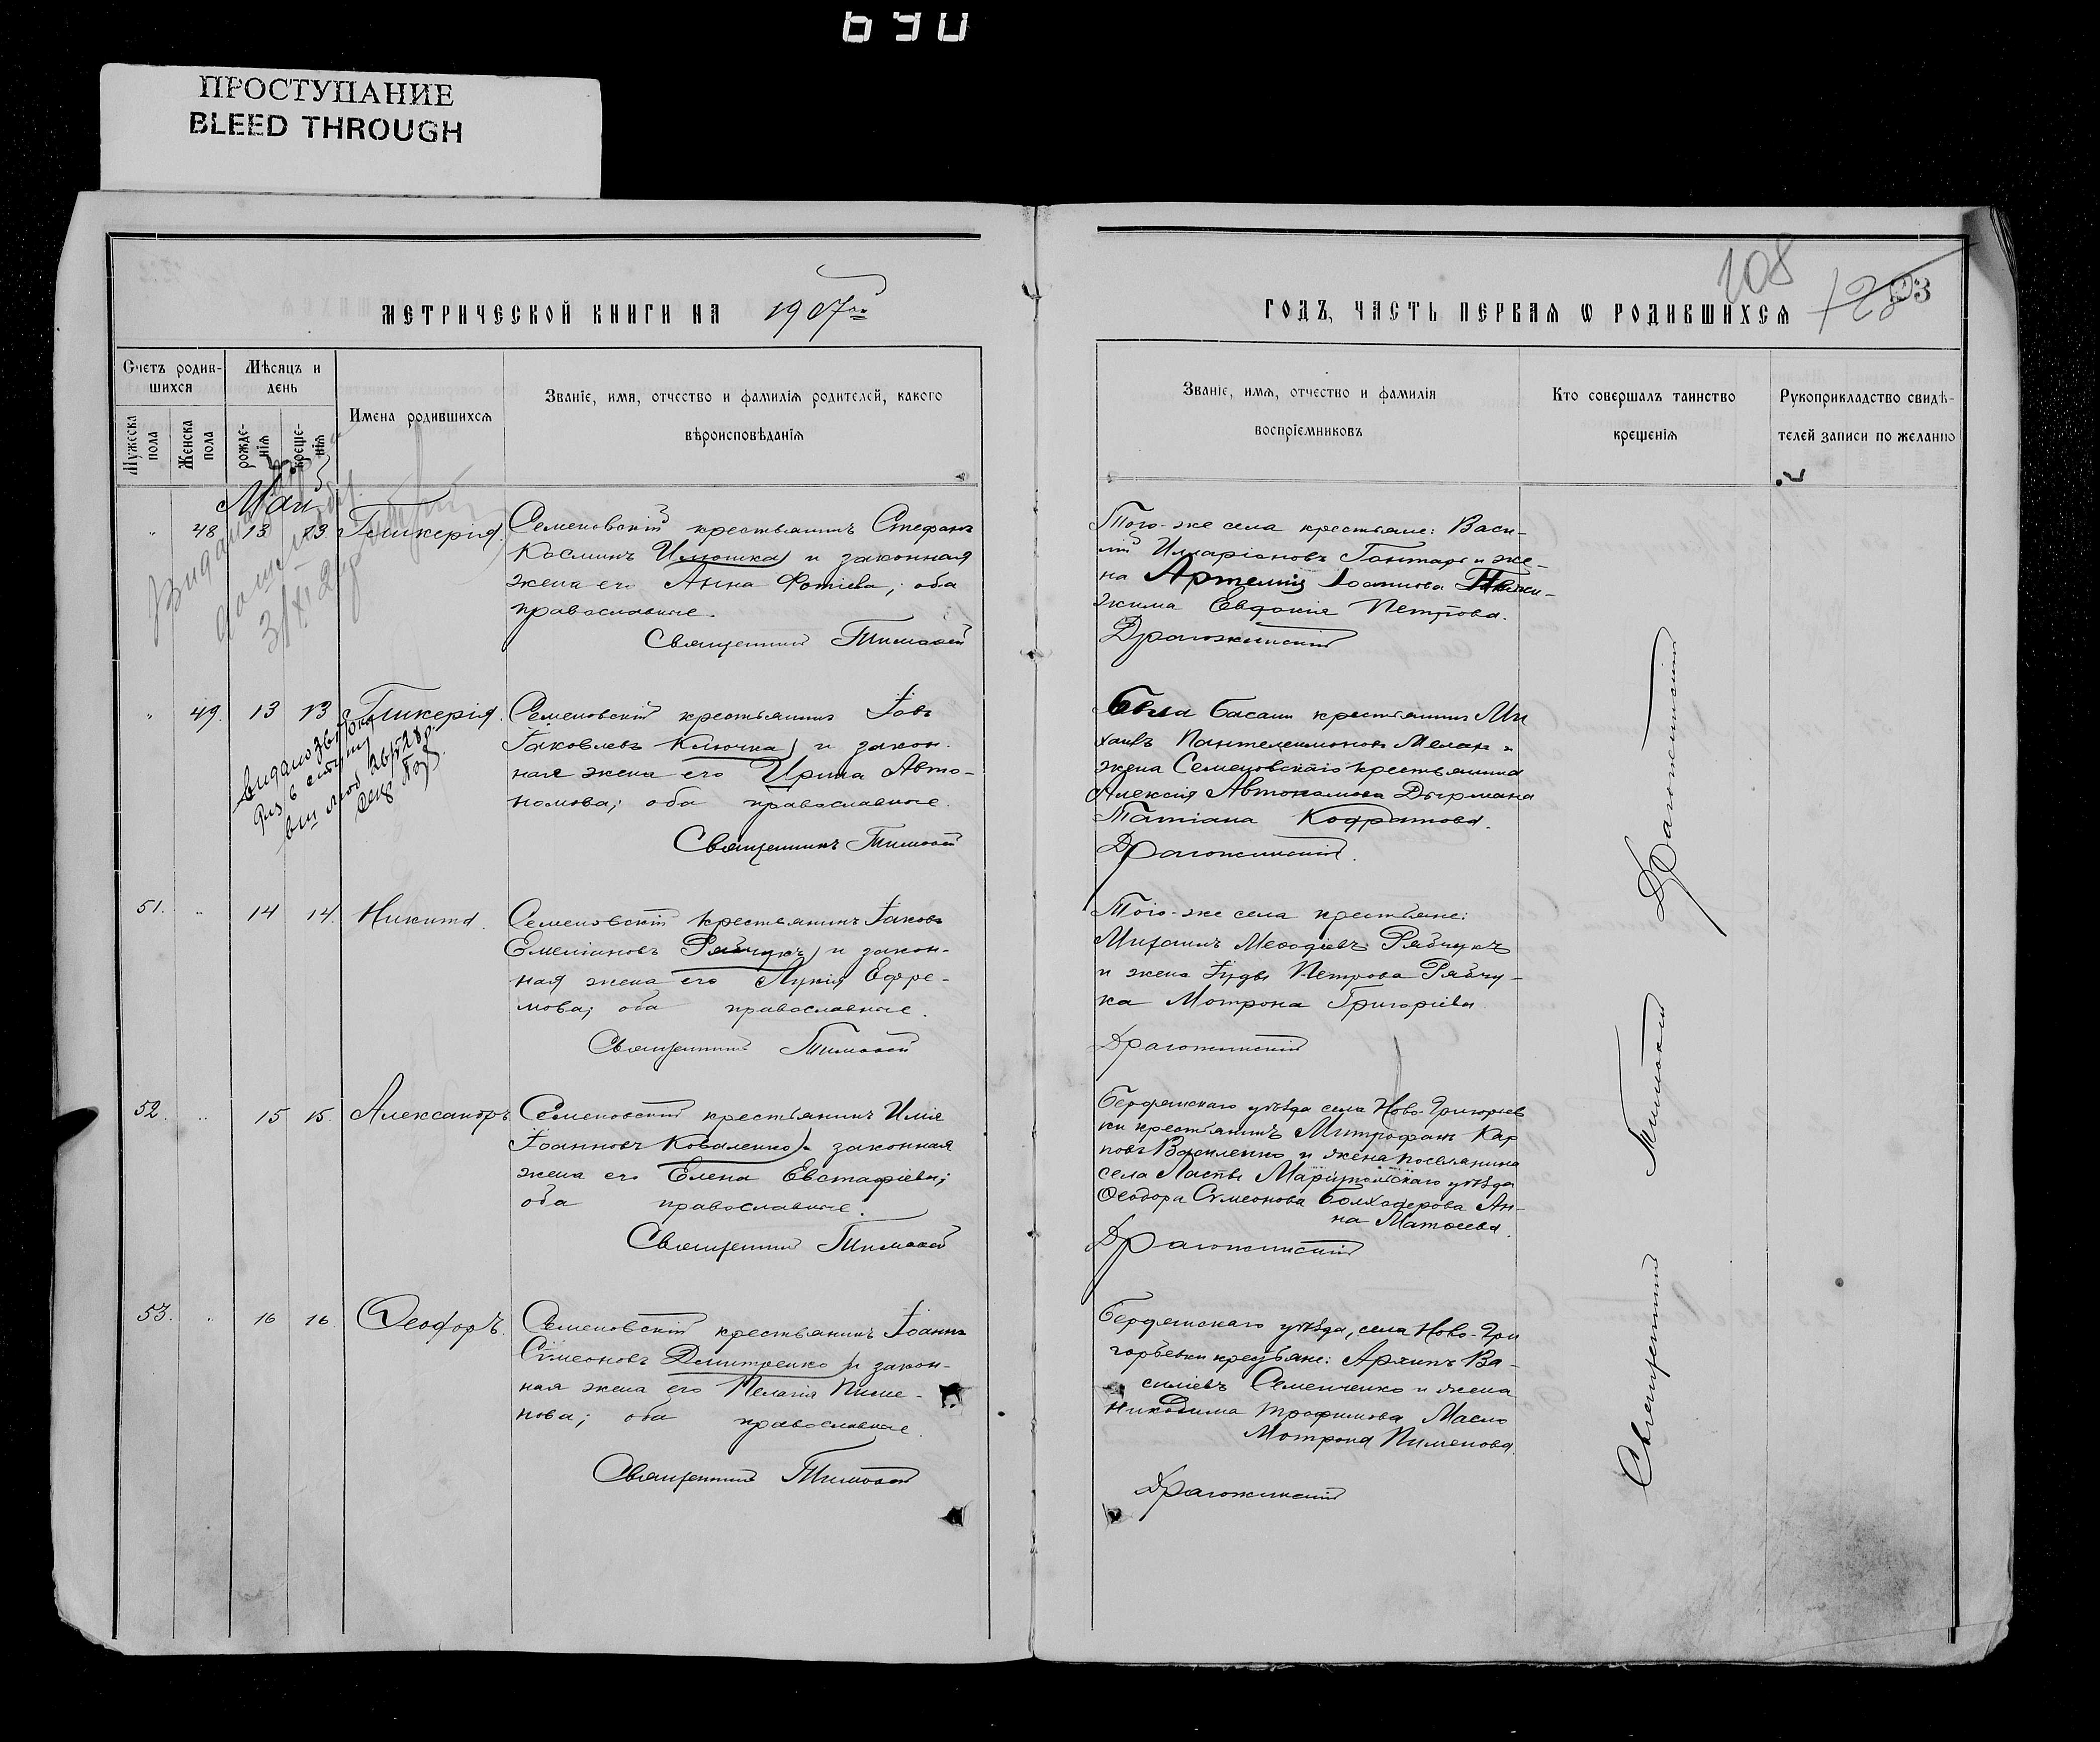 690
ПРОСТУПАНИЕ
BLEED THROUGH
МЕТРИЧЕСКОЙ КНИГИ НА 1907
ГОДЪ, ЧАСТЬ ПЕРВАЯ Ѡ РОДИВШИХСЯ
108
123
Счетъ родив-
шихся
Мѣсяцъ и
день
Мужеска
пола
Женска
пола
рожде-
нія
креще-
нія
Имена родившихся
Званіе, имя, отчество и фамилія родителей, какого
вѣроисповѣданія
Званіе, имя, отчество и фамилія
воспріемниковъ
Кто совершалъ таинство
крещенія
Рукоприкладство свидѣ-
телей записи по желанію
Май
48 13 13 Гликерія.
Семеновскій крестьянинъ Стефанъ
Косминъ Илюшка и законная
жена его Анна Фотіева; оба
православные.
Священникъ Тимошей
Того-же села крестьяне: Васи-
лій Иларіоновъ Гонтарь и же-
на Артемія Іоаннова
жима Евдокія Петрова.
Драгожинскій
49. 13 13 Гликерія.
Семеновскій крестьянинъ Іовъ
Іаковлевъ Ключка и закон.
ная жена его Ирина Авто-
номова; оба православные.
Священникъ Тимошей
Села Басани крестьянинъ Ми
хаилъ Пантелеимоновъ и
жена Семеновскаго крестьянина
Алексія Автономова Дырмана
Татіана Кодратова.
Драгожинскій.
51. 14 14. Никита.
Семеновскій крестьянинъ Іаковъ
Емеліановъ Рябчукъ и закон-
ная жена его Лукія Ефре-
мова; оба православные.
Священникъ Тимошей
Того-же села крестьяне:
Михаилъ Меѳодіевъ Рябчукъ
и жена Іуды Петрова Рябчу-
ка Мотрона Григоріева
Драгожинскій
52. 15 15. Александръ
Семеновскій крестьянинъ Илія
Іоанновъ Коваленко и законная
жена его Елена Евстафіева;
оба православные.
Священникъ Тимошей
Бердянскаго уѣзда села Ново-Григорьев
ки крестьянинъ Митрофанъ Кар
повъ Василенко и жена поселянина
села Ласпы Маріупольскаго уѣзда
Ѳеодора Сѵмеонова Анна
на Матѳеева.
Драгожинскій
53. 16 16. Ѳеодоръ.
Семеновскій крестьянинъ Іоаннъ
Сѵмеоновъ Дмитренко и закон-
ная жена его Пелагія Пиме-
нова; оба православные.
Священникъ Тимошей
Бердянскаго уѣзда, села Ново-Гри
горьевки крестьяне: Архипъ Ва-
силіевъ Семенченко и жена
Никодима Трофимова Масло
Мотрона Пименова.
Драгожинскій
Священникъ Тимошей Драгожинскій